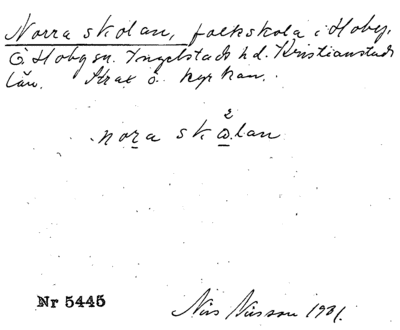 Norra skolan, folkskola i Hoby,
Ö Hoby sn. Ingelstads hd. Kristianstads
län. Strax ö. kyrkan.
2
nora skωlan
Nr 5445
Nils Nilsson 1931.